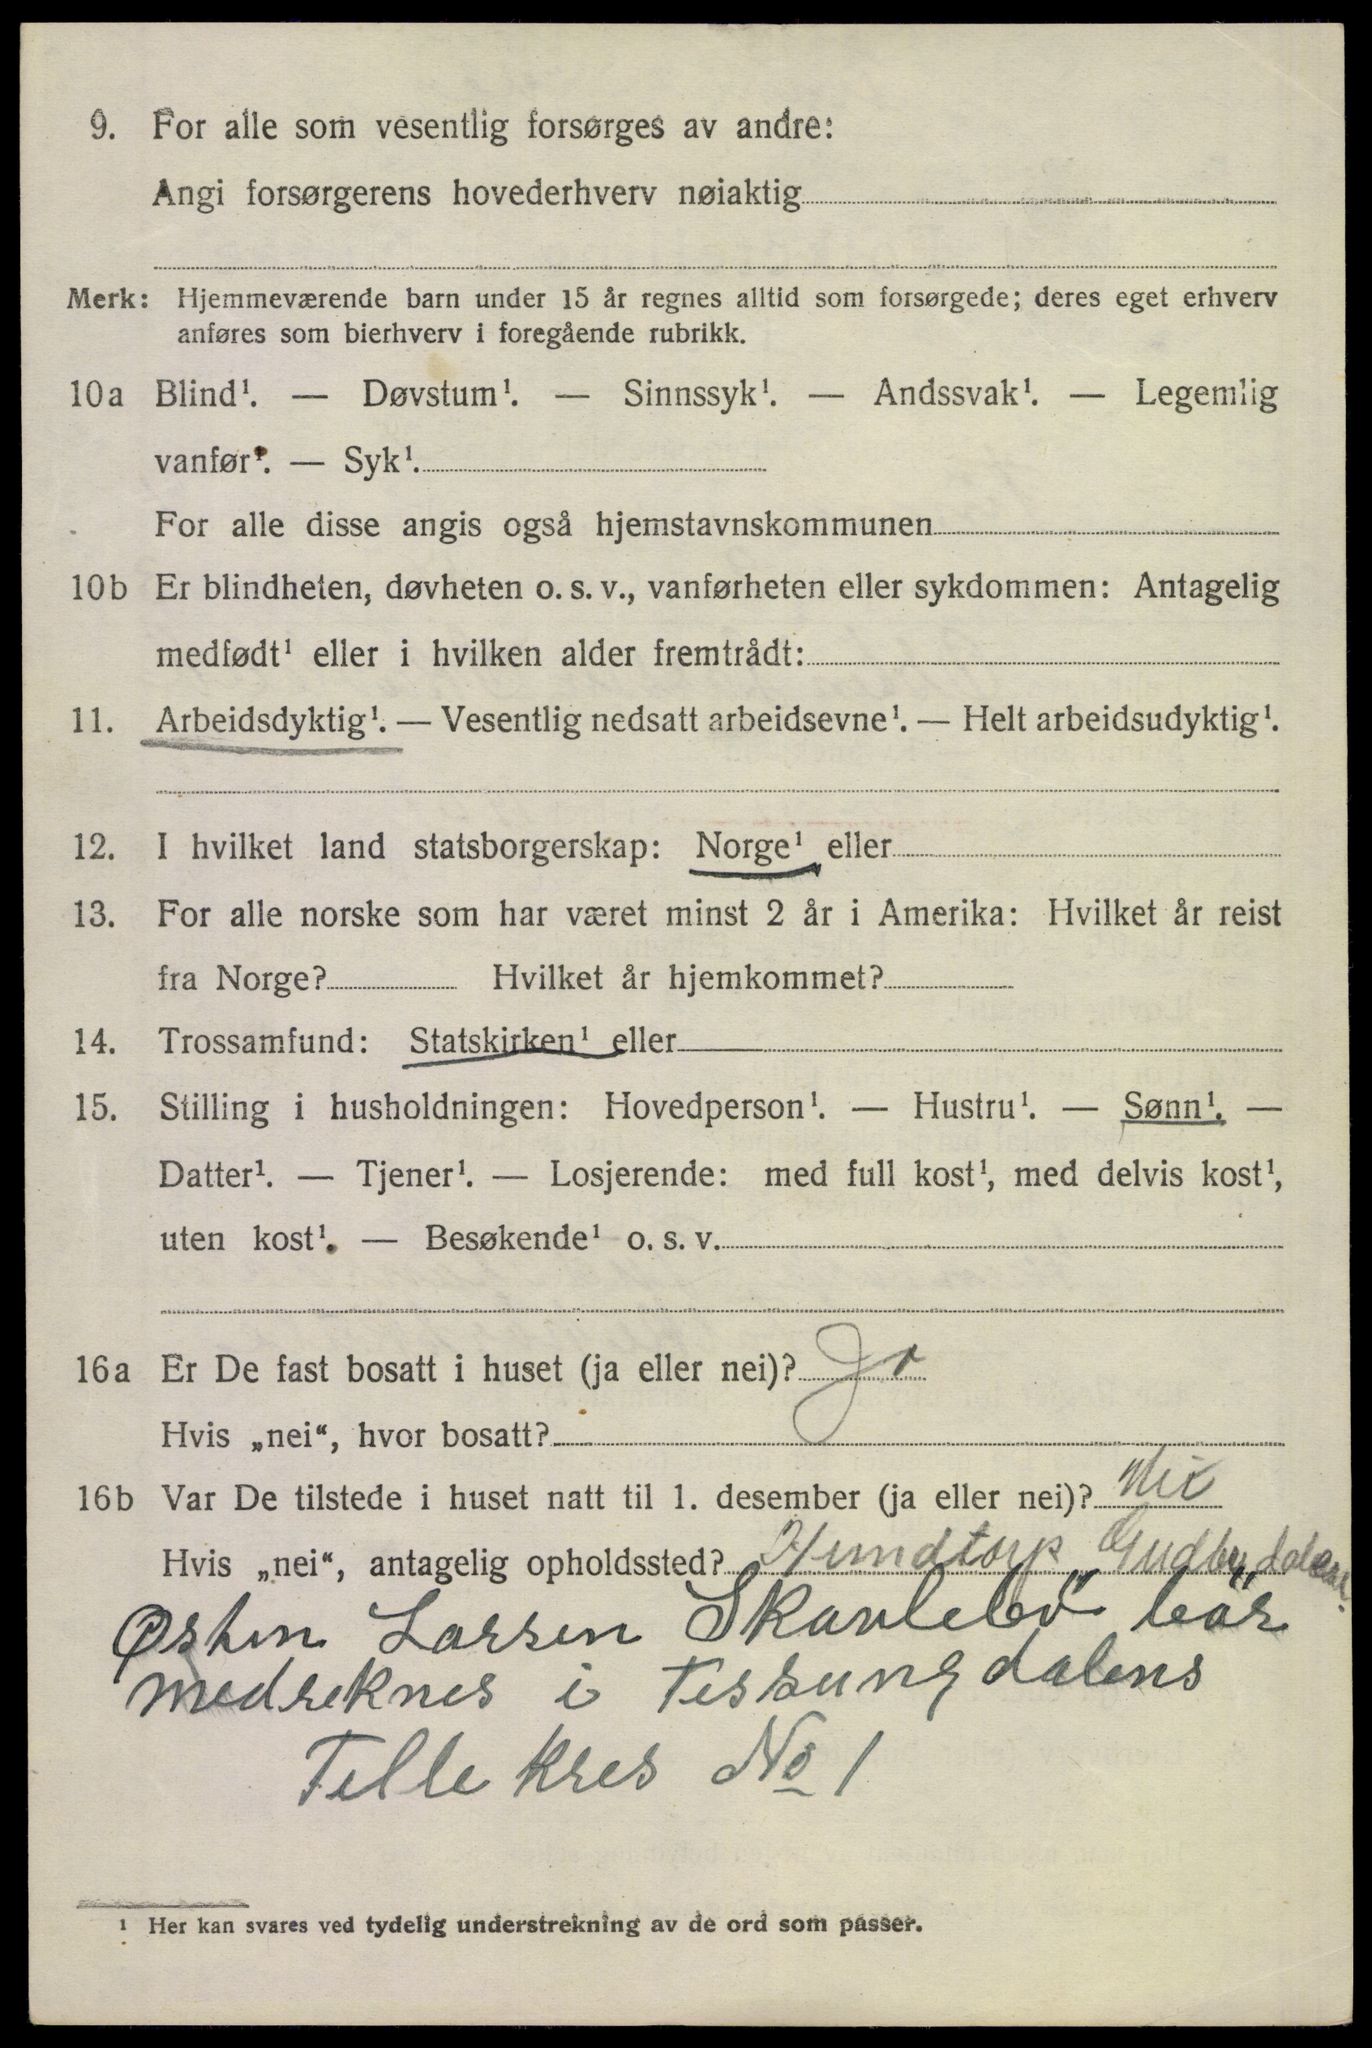 9. For alle som vesentlig forsørges av andre:
Angi forsørgerens hovederhverv nøiaktig
Merk: Hjemmeværende barn under 15 år regnes alltid som forsørgede; deres eget erhverv
anføres som bierhverv i foregående rubrikk.
10a Blind¹. — Døvstum¹. — Sinnssyk¹. — Andssvak¹. — Legemlig
vanfør¹. — Syk¹.
For alle disse angis også hjemstavnskommunen
10b Er blindheten, døvheten o. s. v., vanførheten eller sykdommen: Antagelig
medfødt¹ eller i hvilken alder fremtrådt:
11. Arbeidsdyktig¹. — Vesentlig nedsatt arbeidsevne¹. — Helt arbeidsudyktig¹.
12. I hvilket land statsborgerskap: Norge¹ eller
13. For alle norske som har været minst 2 år i Amerika: Hvilket år reist
fra Norge? Hvilket år hjemkommet?
14. Trossamfund: Statskirken¹ eller
15. Stilling i husholdningen: Hovedperson¹. — Hustru¹. — Sønn¹. —
Datter¹. — Tjener¹. — Losjerende: med full kost¹, med delvis kost¹,
uten kost¹. — Besøkende¹ o. s. v.
16a Er De fast bosatt i huset (ja eller nei)? Ja
Hvis „nei“, hvor bosatt?
16b Var De tilstede i huset natt til 1. desember (ja eller nei)? Nei
Hvis „nei“, antagelig opholdssted? Hundtorp Gudbrdalen.
Østen Larsen bör
medreknes i Tessungdalens
Tellekres No 1
¹ Her kan svares ved tydelig understrekning av de ord som passer.